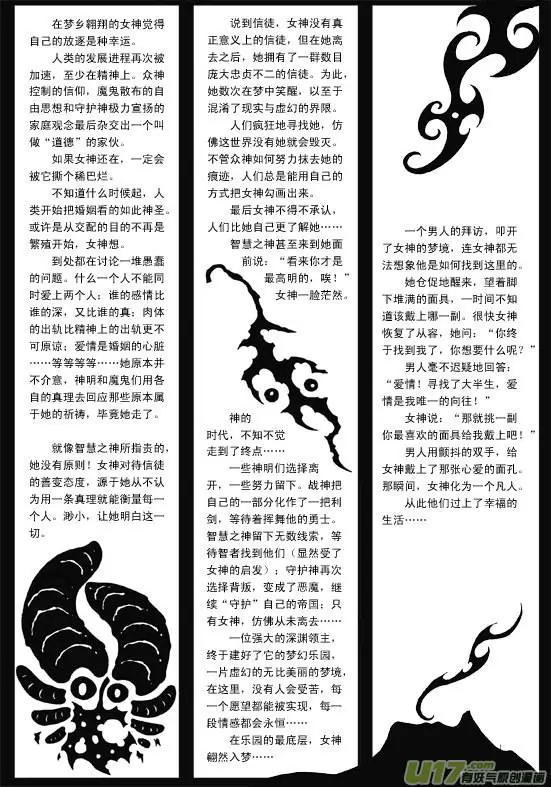 在梦乡翱翔的女神觉得
自己的放逐是种幸运。
人类的发展进程再次被
加速，至少在精神上。众神
控制的信仰，魔鬼散布的自
由思想和守护神极力宣扬的
家庭观念最后杂交出一个叫
做“道德”的家伙。
如果女神还在，一定会
被它撕个稀巴烂。
不知道什么时候起，人
类开始把婚姻看的如此神圣。
或许是从交配的目的不再是
繁殖开始，女神想。
到处都在讨论一堆愚蠢
的问题。什么一个人不能同
时爱上两个人；谁的感情比
谁的深，又比谁的真；肉体
的出轨比精神上的出轨更不
可原谅；爱情是婚姻的心脏
……等等等等……她原本并
不介意，神明和魔鬼们用各
自的真理去回应那些原本属
于她的祈祷，毕竟她走了。
就像智慧之神所指责的，
她没有原则！女神对待信徒
的善变态度，源于她从不认
为用一条真理就能衡量每一
个人。渺小，让她明白这一
切。
说到信徒，女神没有真
正意义上的信徒，但在她离
去之后，她拥有了一群数目
庞大忠贞不二的信徒。为此，
她数次在梦中笑醒，以至于
混淆了现实与虚幻的界限。
人们疯狂地寻找她，仿
佛这世界没有她就会毁灭。
不管众神如何努力抹去她的
痕迹，人们总是能用自己的
方式把女神勾画出来。
最后女神不得不承认，
人们比她自己更了解她……
智慧之神甚至来到她面
前说：“看来你才是
最高明的，唉！”
女神一脸茫然。
神的
时代，不知不觉
走到了终点……
一些神明们选择离
开，一些努力留下。战神把
自己的一部分化作了一把利
剑，等待着挥舞他的勇士。
智慧之神留下无数线索，等
待智者找到他们（显然受了
女神的启发）；守护神再次
选择背叛，变成了恶魔，继
续“守护”自己的帝国；只
有女神，仿佛从未离去……
一位强大的深渊领主，
终于建好了它的梦幻乐园，
一片虚幻的无比美丽的梦境，
在这里，没有人会受苦，每
一个愿望都能被实现，每一
段情感都会永恒……
在乐园的最底层，女神
翩然入梦……
一个男人的拜访，叩开
了女神的梦境，连女神都无
法想象他是如何找到这里的。
她仓促地醒来，望着脚
下堆满的面具，一时间不知
道该戴上哪一副。很快女神
恢复了从容，她问：“你终
于找到我了，你想要什么呢？”
男人毫不迟疑地回答：
“爱情！寻找了大半生，爱
情是我唯一的向往！”
女神说：“那就挑一副
你最喜欢的面具给我戴上吧！”
男人用颤抖的双手，给
女神戴上了那张心爱的面孔。
那瞬间，女神化为一个凡人。
从此他们过上了幸福的
生活……
U17.com
有妖气原创漫画